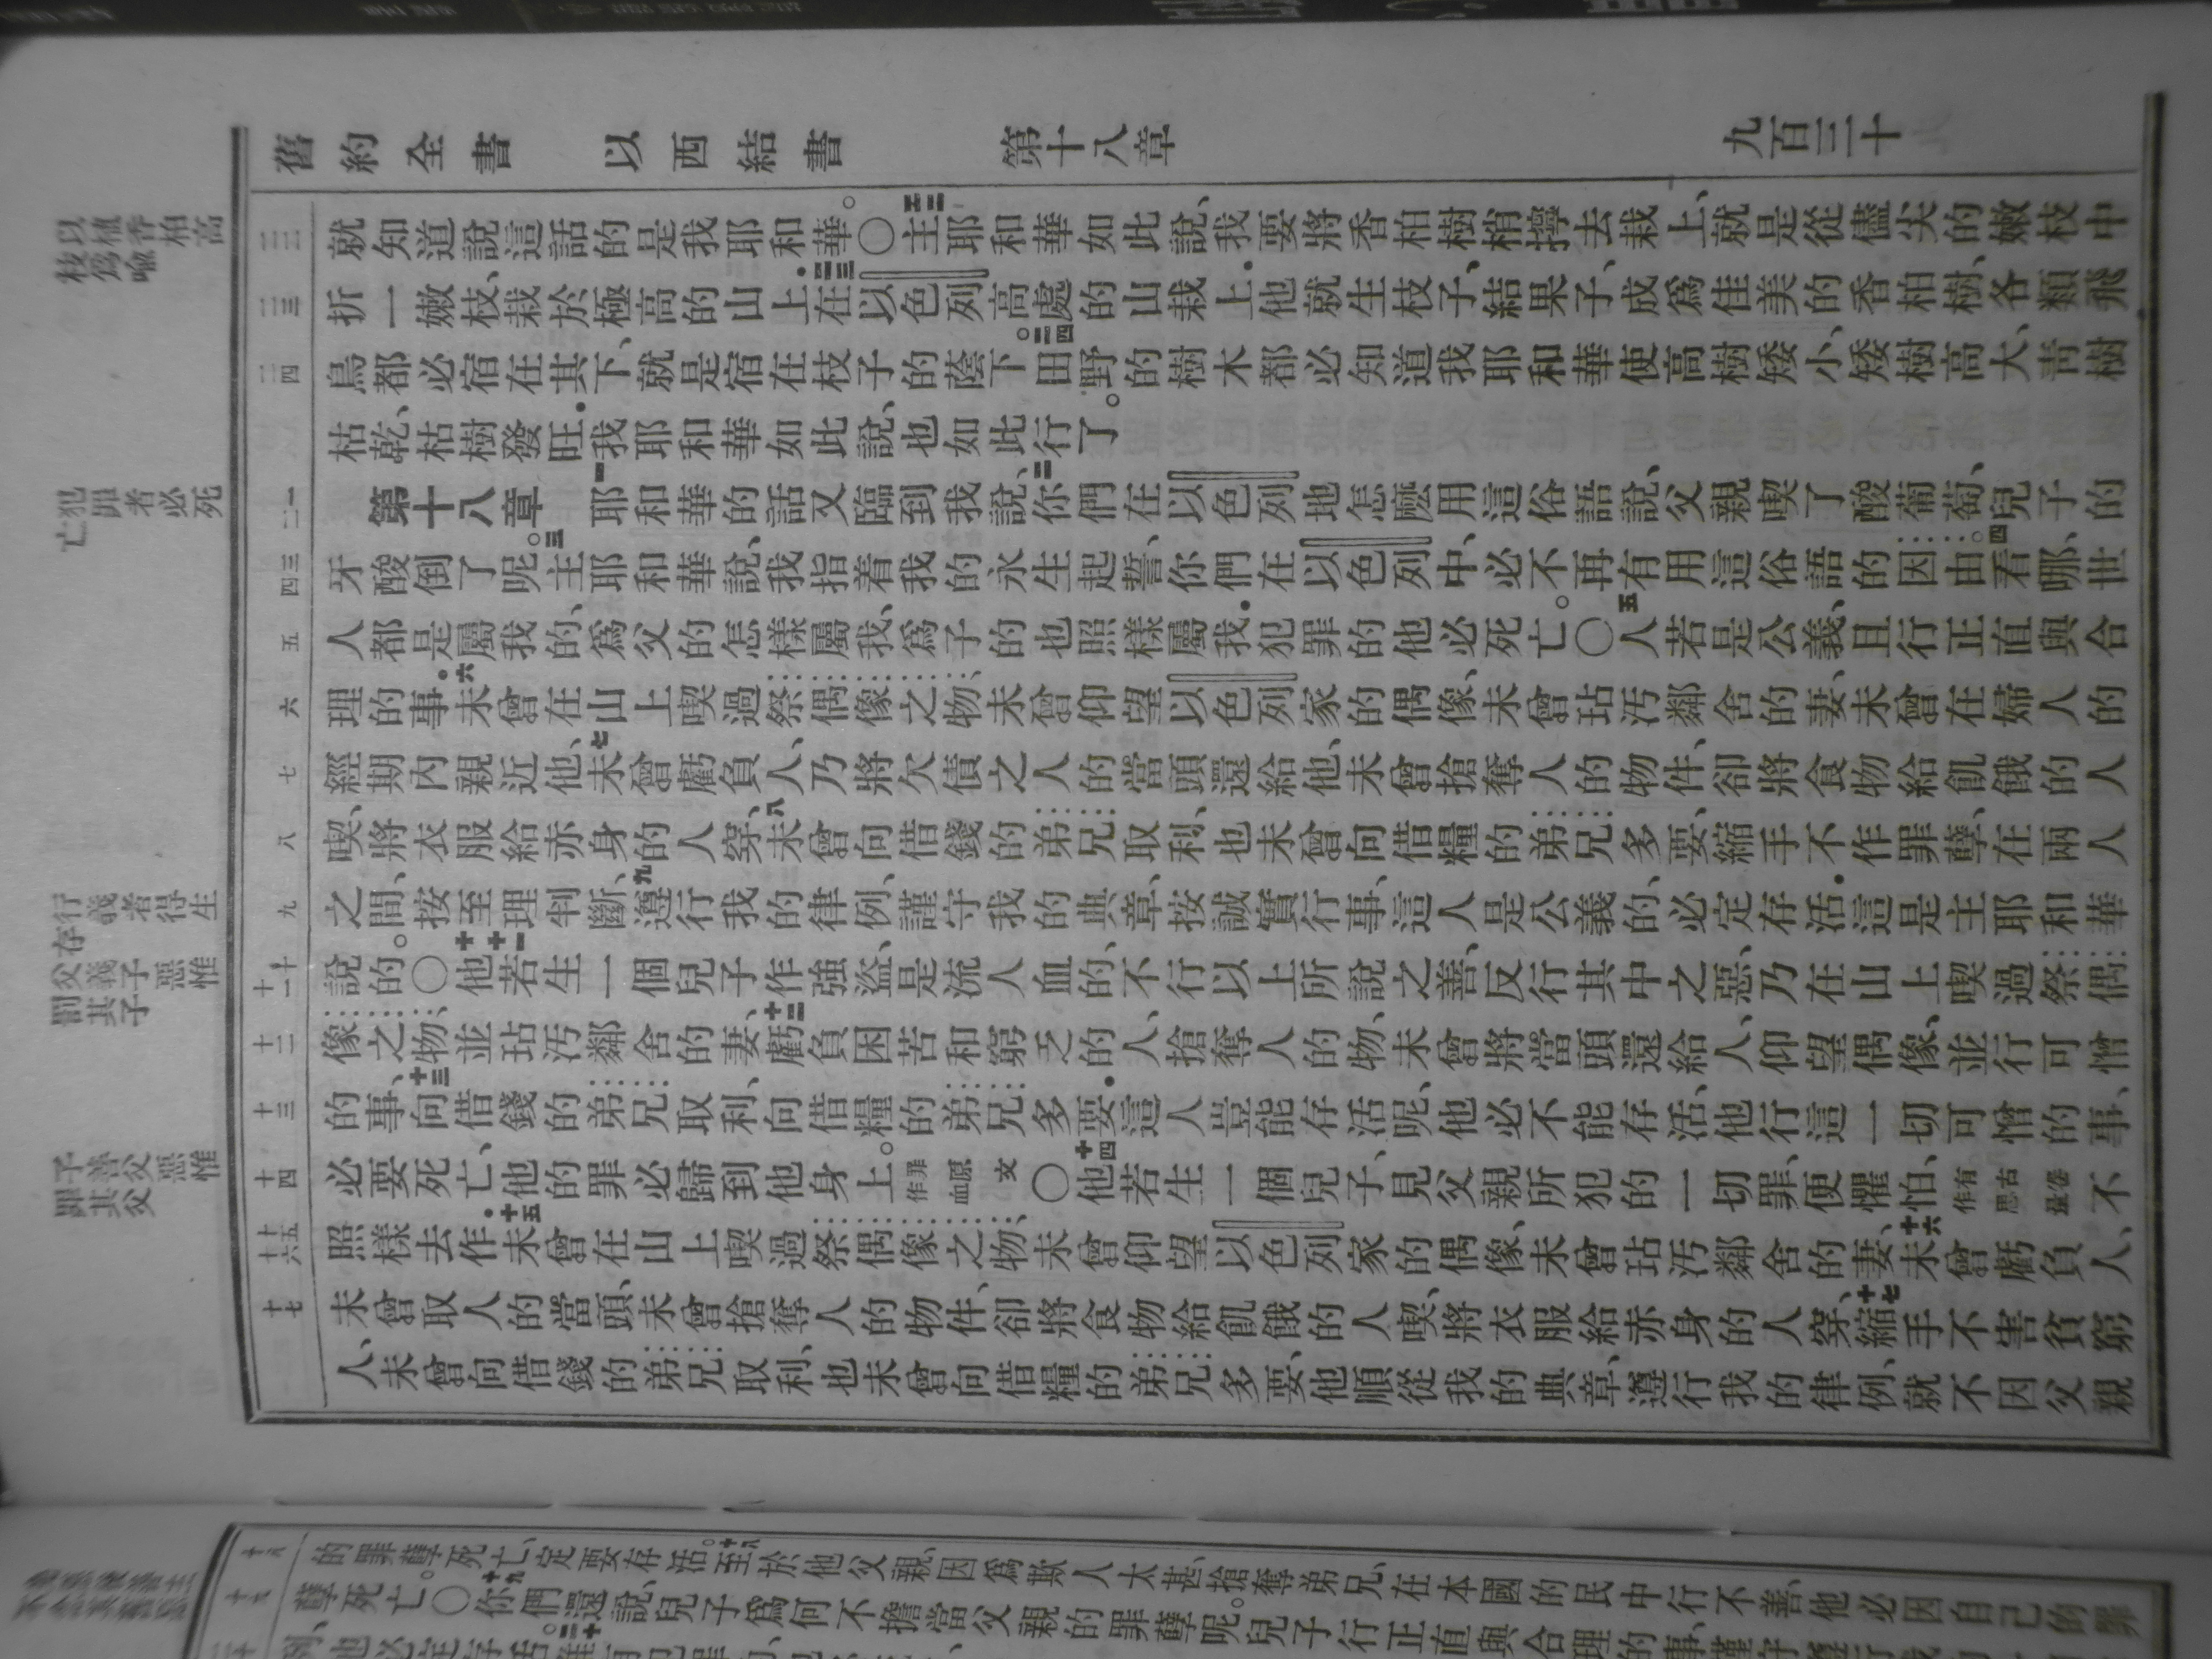 舊約全書　以西結書　第十八章　九百三十
以植香柏高
枝爲喻
犯罪者必死
亡
行義者得生
存
父義子惡惟
罰其子
子善父惡惟
罪其父
就知道說這話的是我耶和華。○二二主耶和華如此說、我要將香柏樹梢擰去栽上、就是從儘尖的嫩枝中
折一嫩枝、栽於極高的山上．二三在以色列高處的山栽上．他就生枝子、結果子、成爲佳美的香柏樹、各類飛
鳥都必宿在其下、就是宿在枝子的蔭下。二四田野的樹木都必知道我耶和華使高樹矮小、矮樹高大、青樹
枯乾、枯樹發旺．我耶和華如此說、也如此行了。
第十八章　一耶和華的話又臨到我說、二你們在以色列地怎麽用這俗語說、父親喫了酸葡萄、兒子的
牙酸倒了呢。三主耶和華說、我指着我的永生起誓、你們在以色列中、必不再有用這俗語的因由。四看哪、世
人都是屬我的、爲父的怎樣屬我、爲子的也照樣屬我．犯罪的他必死亡。○五人若是公義、且行正直與合
理的事．六未曾在山上喫過祭偶像之物、未曾仰望以色列家的偶像、未曾玷污鄰舍的妻、未曾在婦人的
經期內親近他、七未曾虧負人、乃將欠債之人的當頭還給他、未曾搶奪人的物件、卻將食物給飢餓的人
喫、將衣服給赤身的人穿、八未曾向借錢的弟兄取利、也未曾向借糧的弟兄多要、縮手不作罪孽、在兩人
之間、按至理判斷、九遵行我的律例、謹守我的典章、按誠實行事、這人是公義的、必定存活．這是主耶和華
說的。○十他十一若生一個兒子、作強盜、是流人血的、不行以上所說之善、反行其中之惡、乃在山上喫過祭偶
像之物、並玷污鄰舍的妻、十二虧負困苦和窮乏的人、搶奪人的物、未曾將當頭還給人、仰望偶像、並行可憎
的事、十三向借錢的弟兄取利、向借糧的弟兄多要．這人豈能存活呢、他必不能存活、他行這一切可憎的事、
必要死亡、他的罪必歸到他身上。罪原文作血○十四他若生一個兒子、見父親所犯的一切罪、便懼怕、有古卷作思量不
照樣去作．十五未曾在山上喫過祭偶像之物、未曾仰望以色列家的偶像、未曾玷污鄰舍的妻、十六未曾虧負人、
未曾取人的當頭、未曾搶奪人的物件、卻將食物給飢餓的人喫、將衣服給赤身的人穿、十七縮手不害貧窮
人、未曾向借錢的弟兄取利、也未曾向借糧的弟兄多要、他順從我的典章、遵行我的律例、就不因父親
的罪孽死亡、定要存活。十八至於他父親、因爲欺人太甚、搶奪弟兄、在本國的民中行不善、他必因自己的罪
孽死亡。○十九你們還說、兒子爲何不擔當父親的罪孽呢。兒子行正直與合理的事、